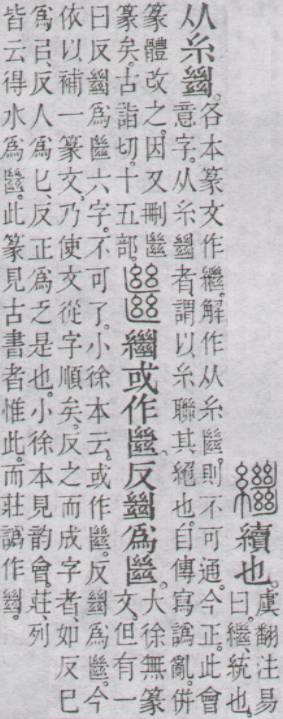 繼 續也。
虞翻注易
曰。繼、統也。
从糸𢇍。
各本篆文作繼。解作从糸㡭。則不可通。今正。此會
意字。从糸𢇍者、謂以糸聯其絕也。自傳寫譌亂、併
篆體改之。因又刪㡭
篆矣。古詣切。十五部。
㡭 繼或作㡭。反𢇍爲㡭。
大徐無篆
文、但有一
曰反𢇍爲㡭六字。不可了。小徐本云、或作㡭。反𢇍爲㡭。今
依以補一篆文、乃使文從字順矣。反之而成字者、如反巳
爲㠯、反人爲匕、反正爲乏是也。小徐本見韵會。莊、列
皆云得水爲㡭。此篆見古書者惟此。而莊譌作𢇍。